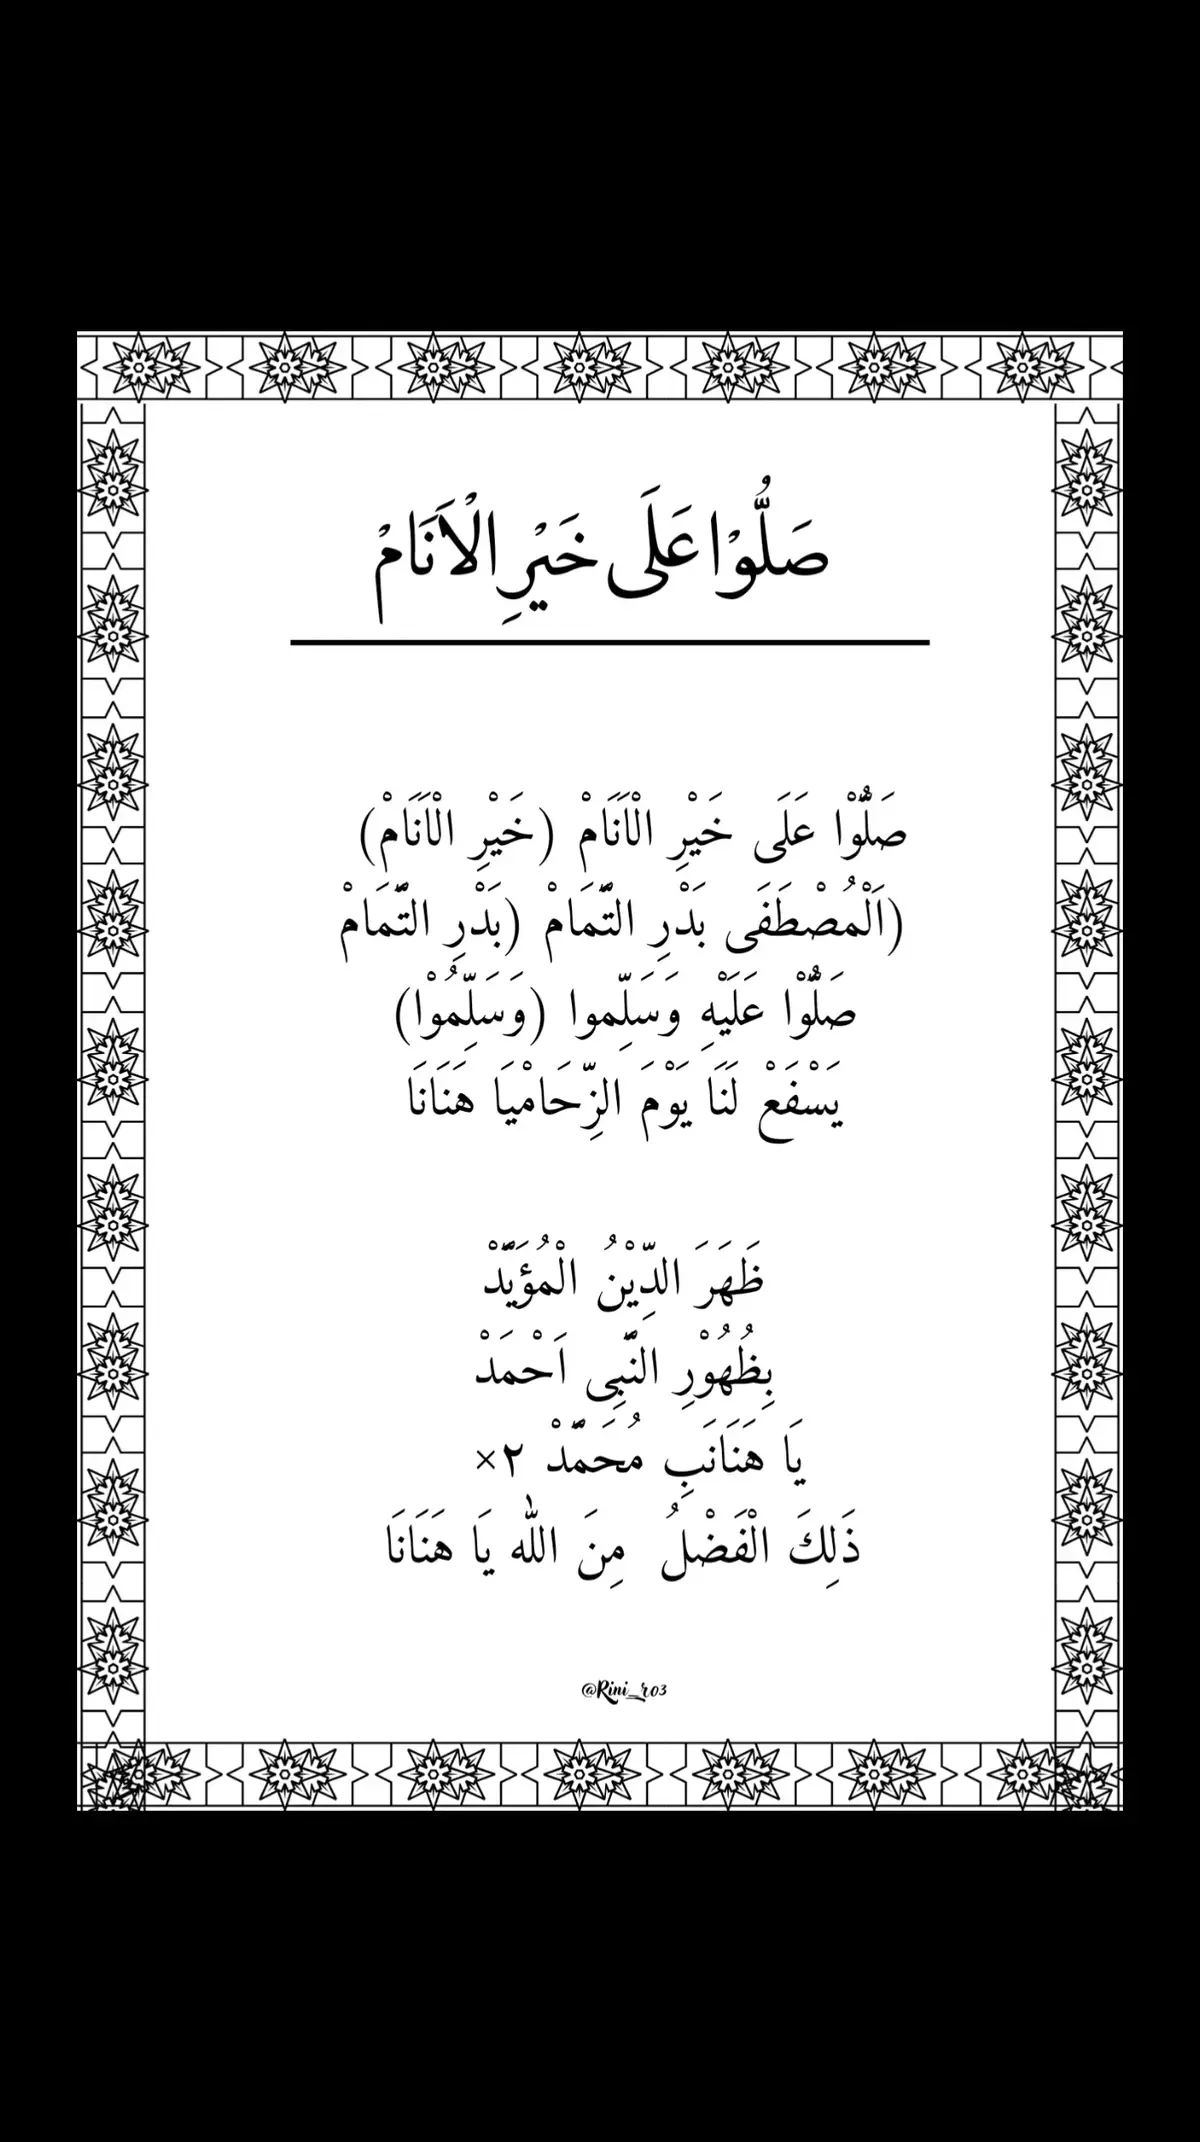 صَلُّوْا عَلَى خَيْرِ الْاَنَامْ
صَلُّوْا عَلَى خَيْرِ الْاَنَامْ (خَيْرِ الْاَنَامْ)
(اَلْمُصْطَفَى بَدْرِ التَّمَامْ (بَدْرِ التَّمَامْ
صَلُّوْا عَلَيْهِ وَسَلِّموا (وَسَلِّمُوْا)
يَسْفَعْ لَنَا يَوْمَ الزِّحَامْيَا هَنَانَا
ظَهَرَ الدِّيْنُ الْمُؤَيَّدْ
بِظُهُوْرِ النَّبِى اَحْمَدْ
يَا هَنَانَبِ مُحَمَّدْ ٢×
ذَلِكَ الْفَضْلُ مِنَ اللّٰه يَا هَنَانَا
@Rini_ro3